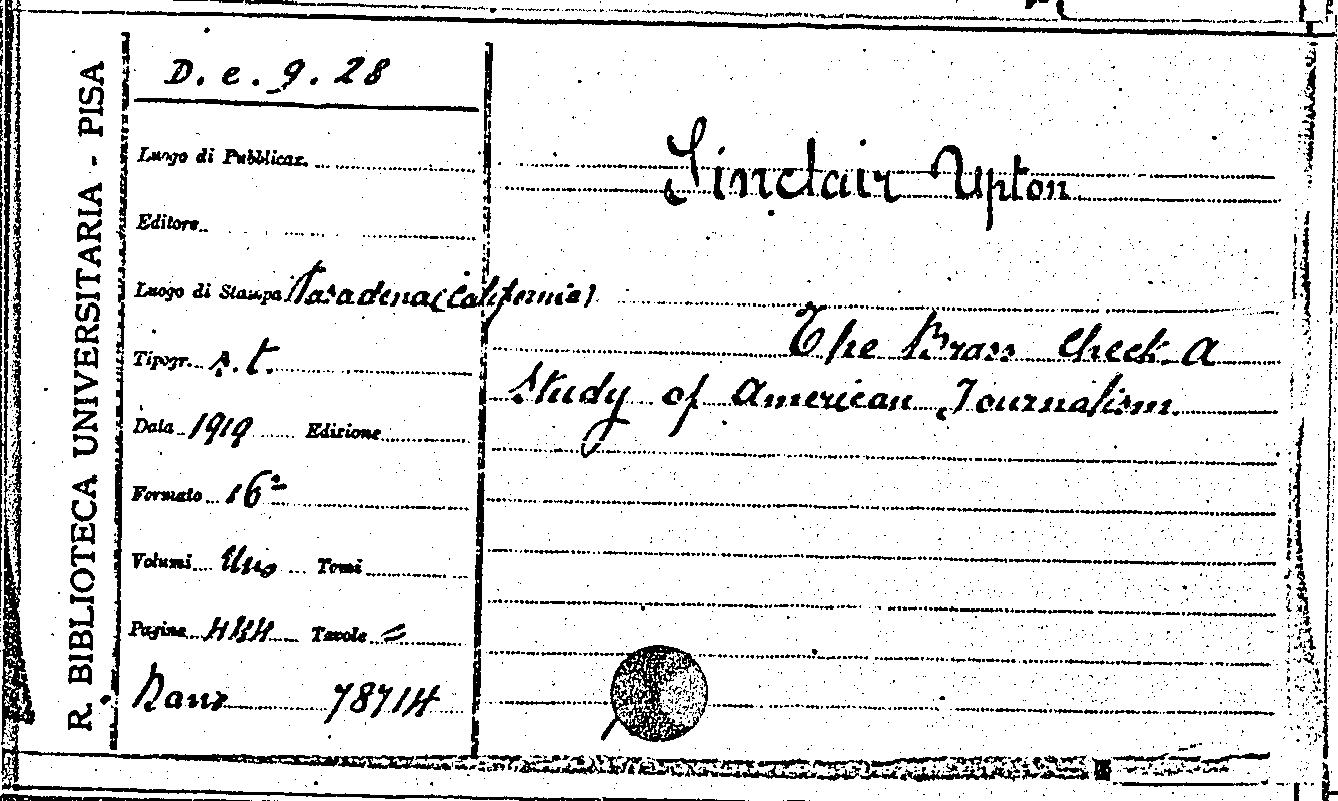 R. BIBLIOTECA UNIVERSITARIA - PISA
D. e. 9. 28
Luogo di Pubblicaz.
Editore
Luogo di Stampa Pasadena (California)
Tipogr. s. t.
Data 1919 Edizione
Formato 16°
Volumi Uno Tomi
Pagine 444 Tavole =
78714
Sinclair Upton
The Brass Check. A
Study of American Journalism.